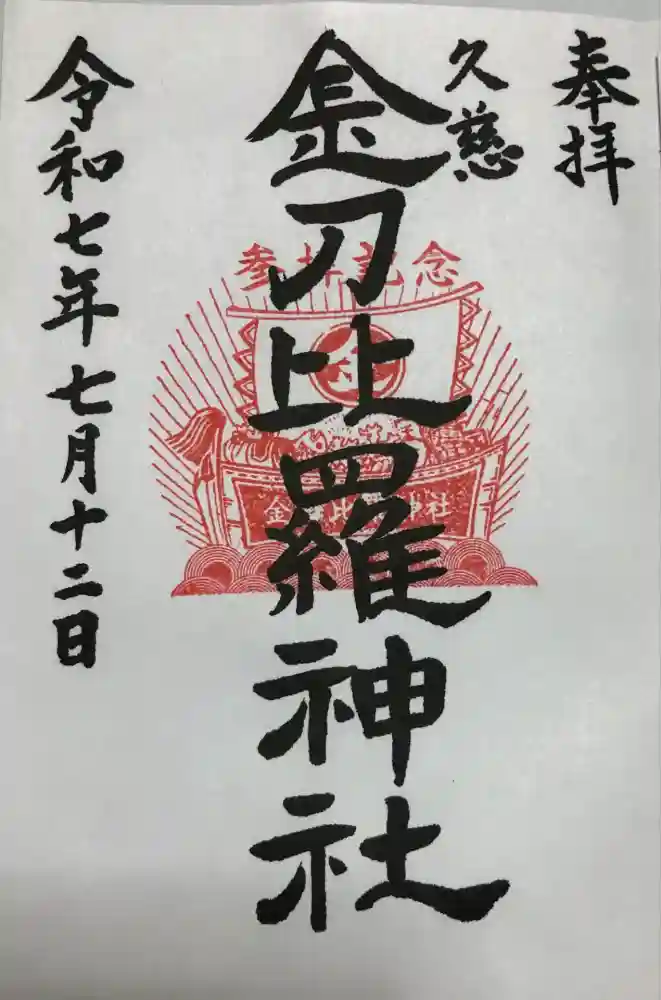 奉拝
久慈
金刀比羅神社
参拝記念
金刀比羅神社
令和七年七月十二日